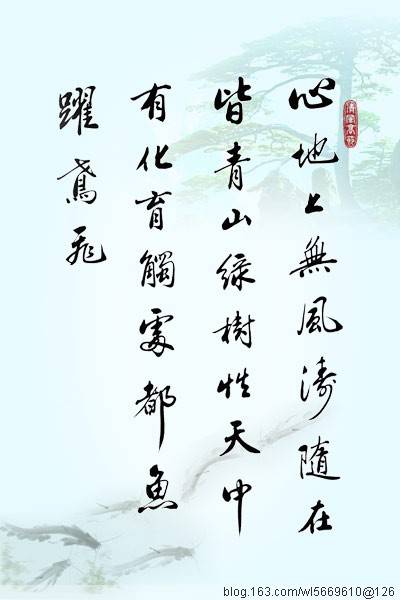 心地上無風濤隨在
皆青山綠樹性天中
有化育觸處都魚
躍鳶飛
blog.163.com/wl5669610@126